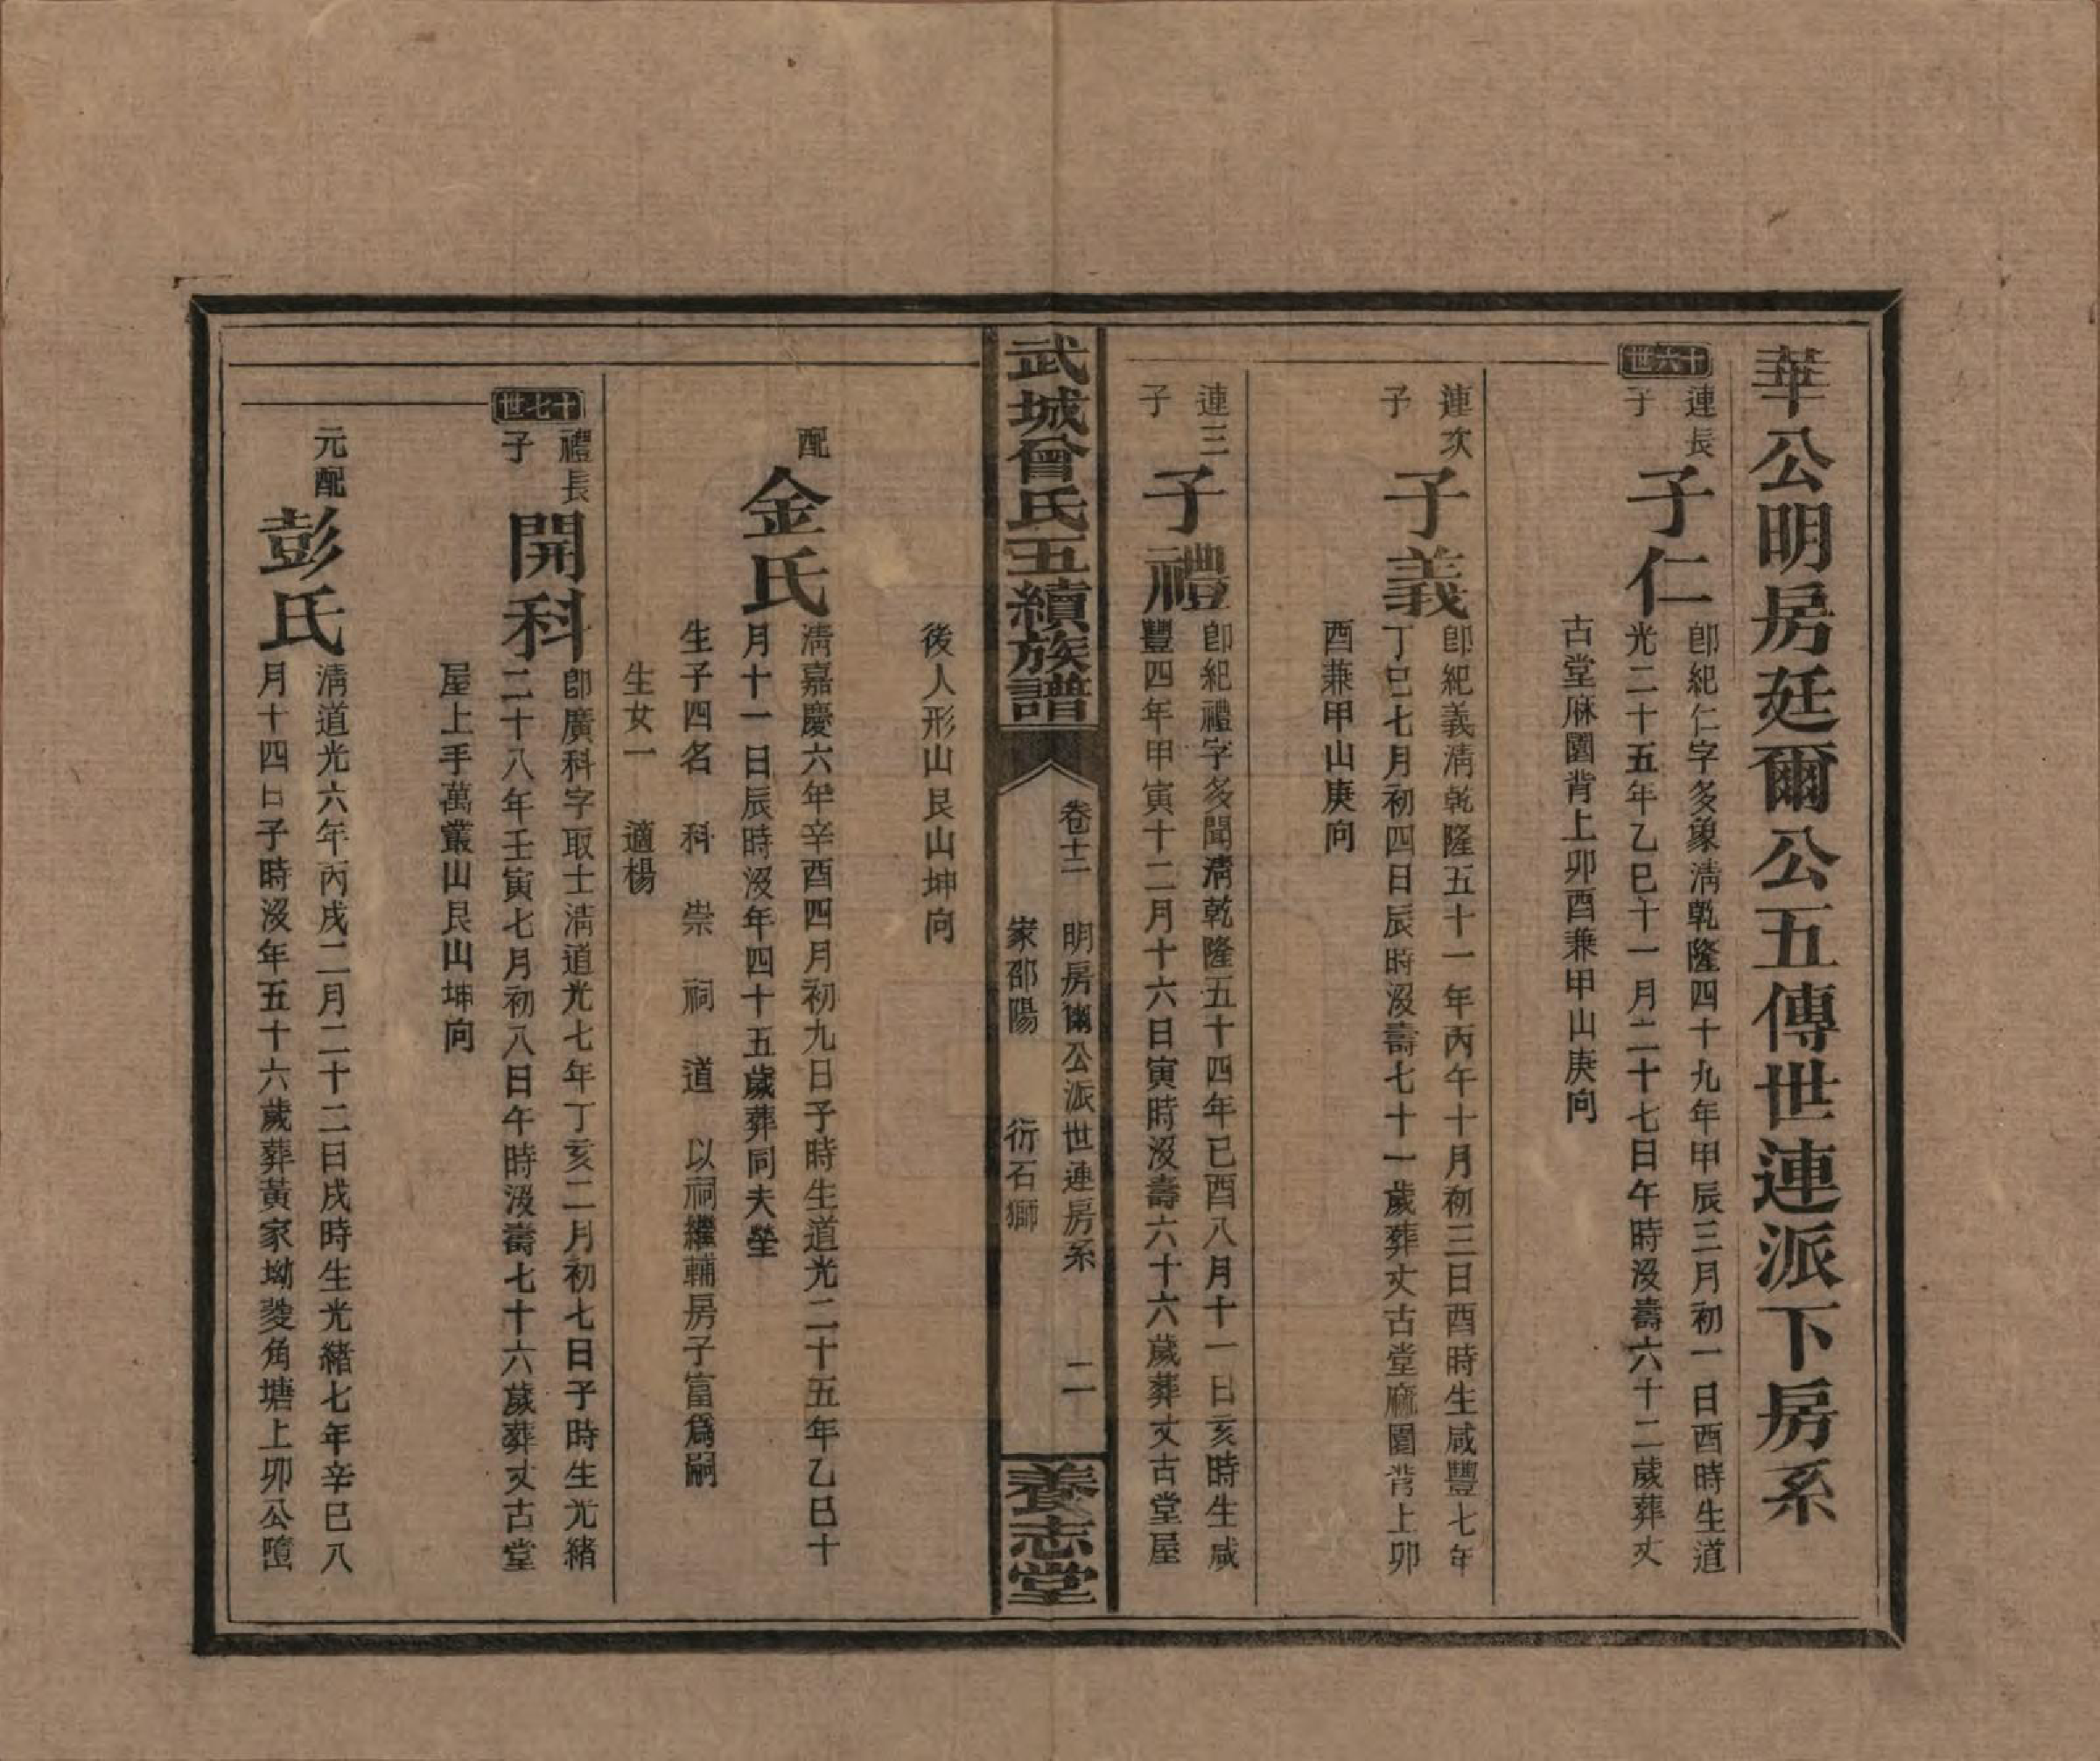 華公明房廷爾公五傳世連派下房系
十六世
連長子
子仁
卽紀仁字多象淸乾隆四十九年甲辰三月初一日酉時生道
光二十五年乙巳十一月二十七日午時沒壽六十二歲葬丈
古堂麻園背上卯酉兼甲山庚向
連次子
子義
卽紀義淸乾隆五十一年丙午十月初三日酉時生咸豐七年
丁巳七月初四日辰時沒壽七十一歲葬丈古堂麻園背上卯
酉兼甲山庚向
連三子
子禮
卽紀禮字多聞淸乾隆五十四年已酉八月十一日亥時生咸
豐四年甲寅十二月十六日寅時沒壽六十六歲葬丈古堂屋
武城曾氏五續族譜
卷十二
明房爾公派世連房系
家邵陽
衍石獅
二
養志堂
後人形山艮山坤向
配
金氏
淸嘉慶六年辛酉四月初九日子時生道光二十五年乙巳十
月十一日辰時沒年四十五歲葬同夫塋
生子四名 科 崇 祠 道 以祠繼輔房子富爲嗣
生女一 適楊
十七世
禮長子
開科
卽廣科字取士淸道光七年丁亥二月初七日子時生光緒
二十八年壬寅七月初八日午時沒壽七十六歲葬丈古堂
屋上手萬叢山艮山坤向
元配
彭氏
淸道光六年丙戌二月二十二日戌時生光緒七年辛巳八
月十四日子時沒年五十六歲葬黃家坳菱角塘上卯公墮